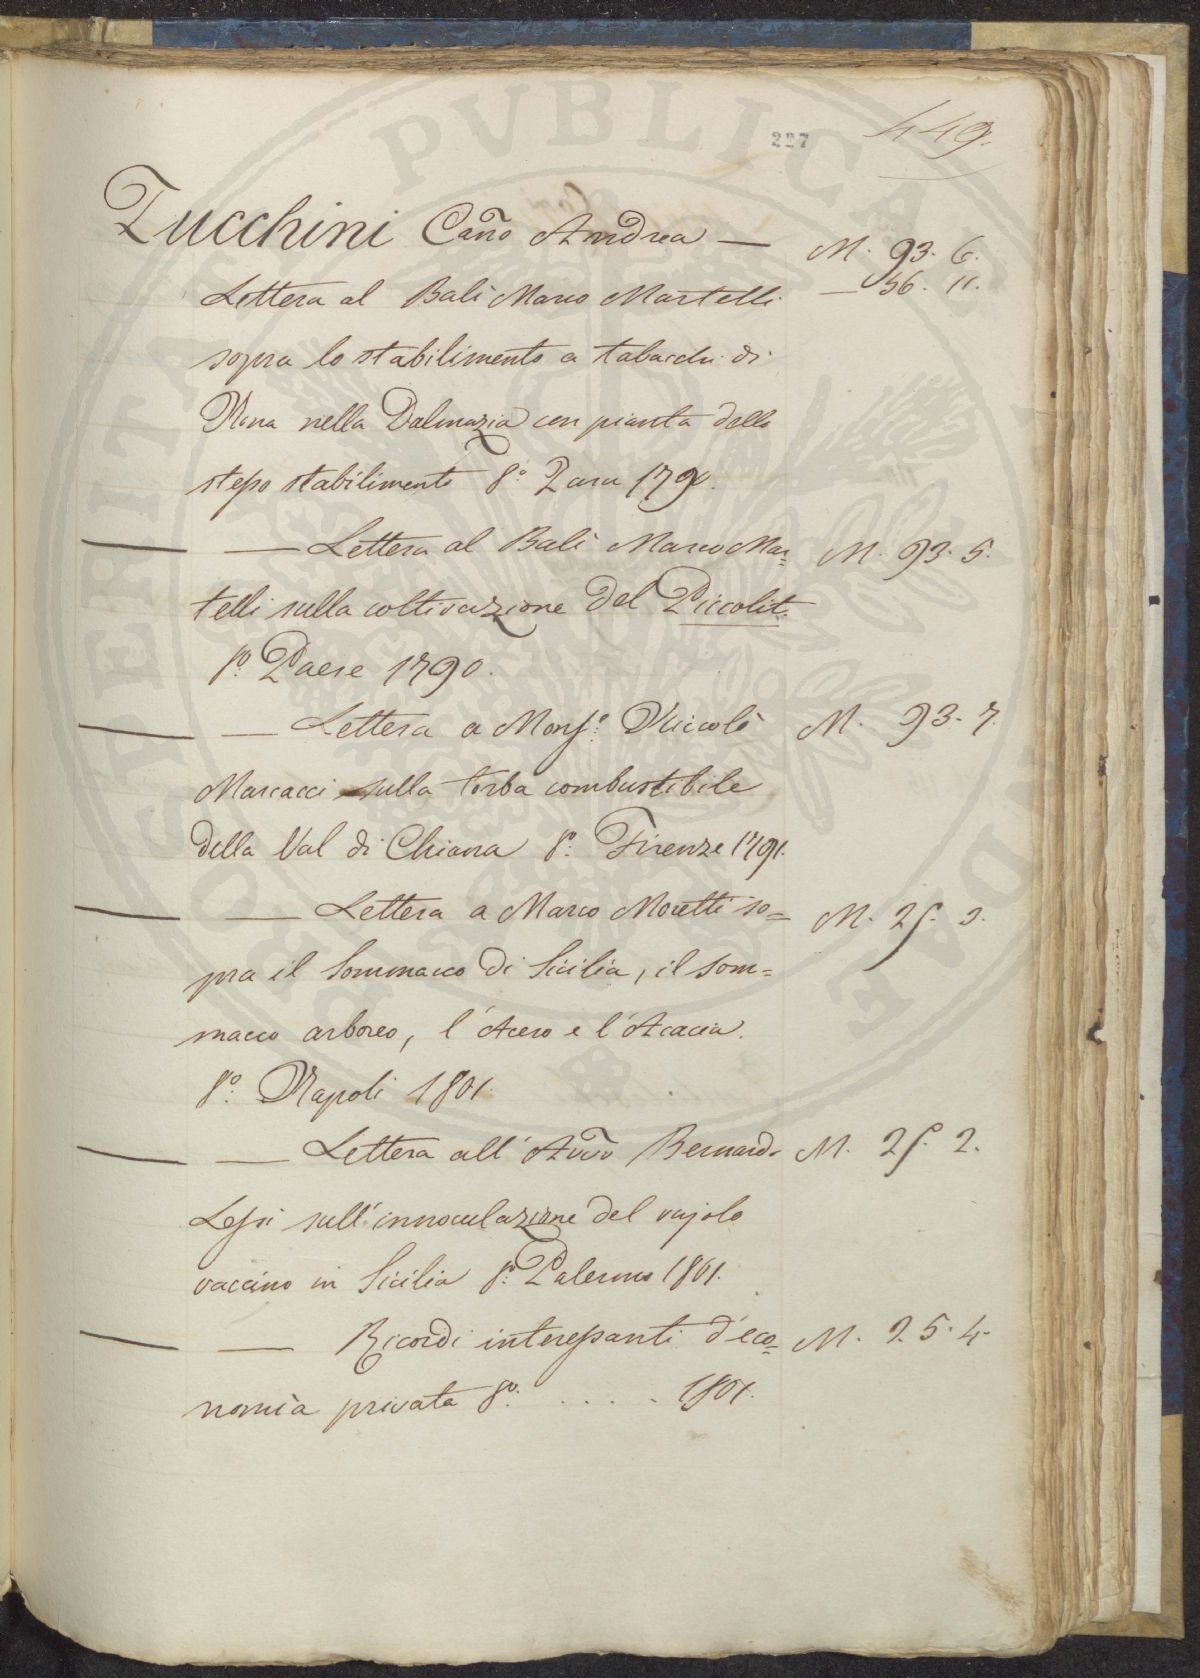 449.
227
Zucchini Cañο Andrea — M. 93. 6.
Lettera al Balì Marco Martelli — 56. 11.
sopra lo stabilimento a tabacchi di
Nona nella Dalmazia con pianta dello
stesso stabilimento 8.º Zara 1790.
— Lettera al Balì Marco Mar= M. 93. 5.
telli sulla coltivazione del Piccolit.
8.º Paese 1790.
— Lettera a Monsº. Niccolò M. 93. 7.
Marcacci sulla torba combustibile
della Val di Chiana 8.º Firenze 1791.
— Lettera a Marco Moretti so= M. 25. 3.
pra il Sommacco di Sicilia, il som=
macco arboreo, l'Acero e l'Acacia.
8.º Napoli 1801
— Lettera all' Avvo Bernardo M. 25. 2.
Lessi sull'innoculazione del vajolo
vaccino in Sicilia 8.º Palermo 1801.
— Ricordi interessanti d'eco= M. 25. 4.
nomia privata 8.º . . . . 1801.
PUBLICAE
PROSPERITATI